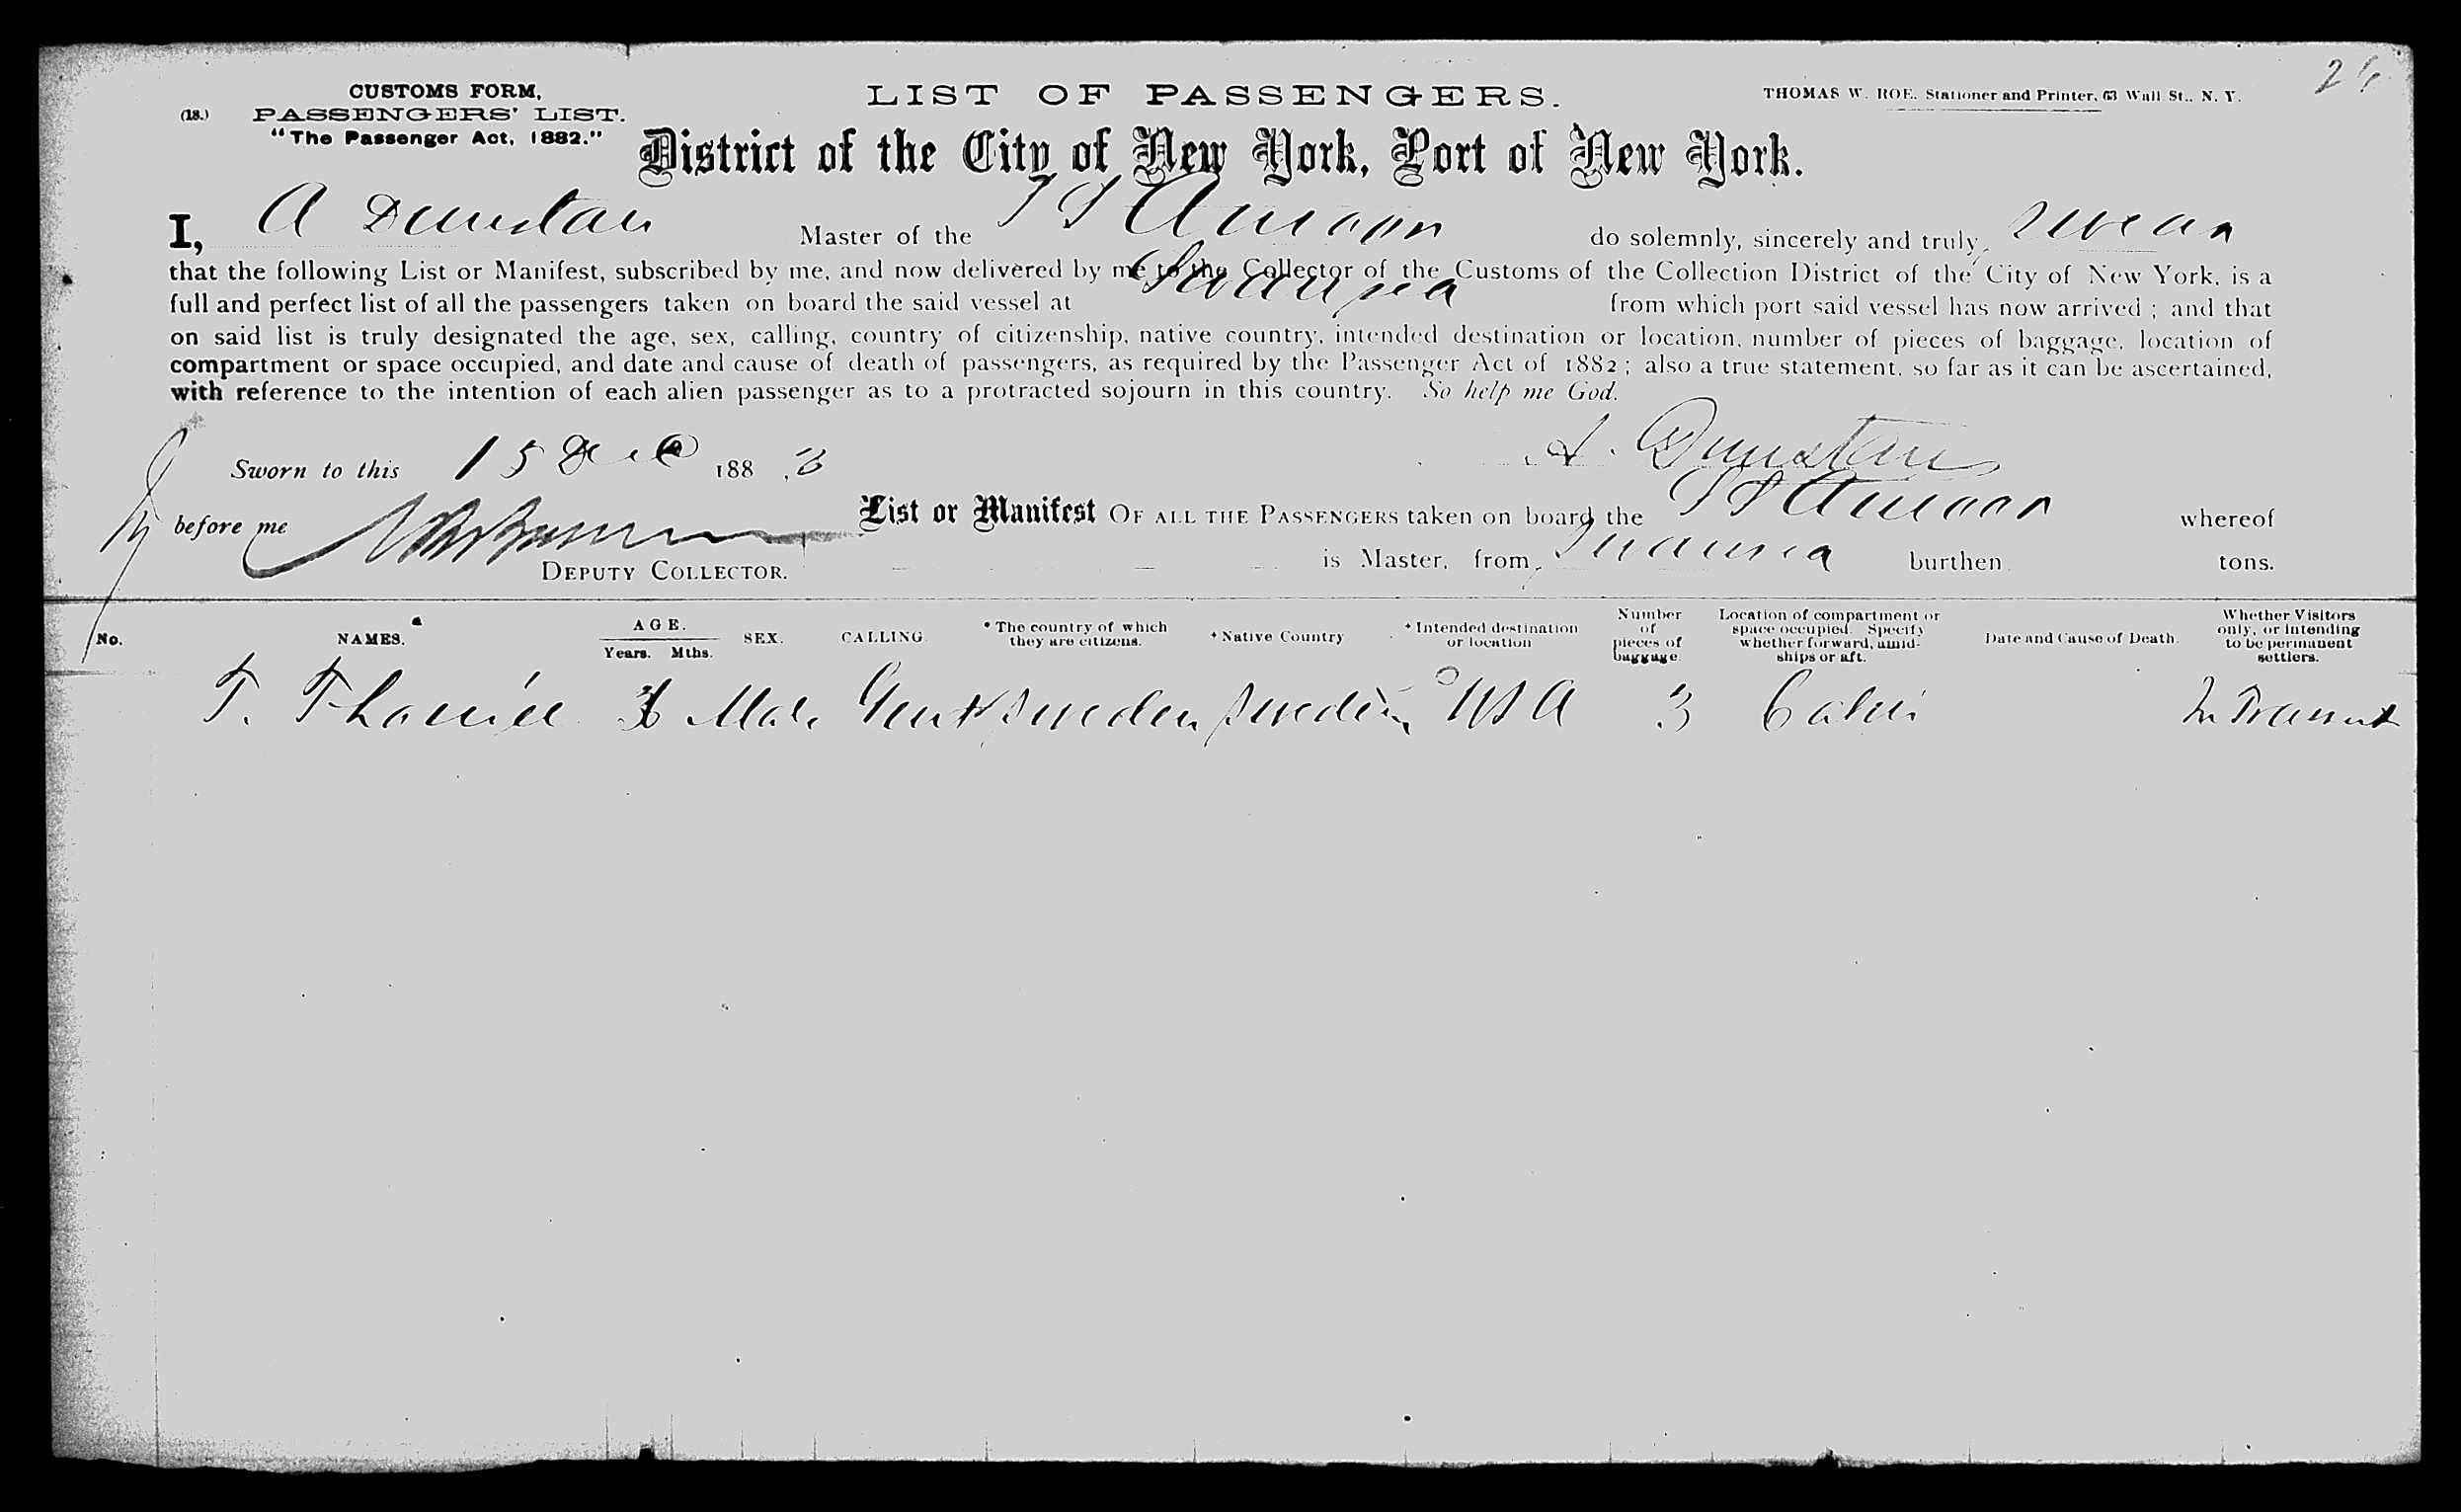 26
CUSTOMS FORM,
(18.) PASSENGERS' LIST.
"The Passenger Act, 1882."
LIST OF PASSENGERS.
THOMAS W. ROE, Stationer and Printer, 63 Wall St., N. Y.
District of the City of New York, Port of New York.
I, A Dunstan Master of the SS do solemnly, sincerely and truly, swear
that the following List or Manifest, subscribed by me, and now delivered by me to the Collector of the Customs of the Collection District of the City of New York, is a
full and perfect list of all the passengers taken on board the said vessel at Swansea from which port said vessel has now arrived ; and that
on said list is truly designated the age, sex, calling, country of citizenship, native country, intended destination or location, number of pieces of baggage, location of
compartment or space occupied, and date and cause of death of passengers, as required by the Passenger Act of 1882 ; also a true statement, so far as it can be ascertained,
with reference to the intention of each alien passenger as to a protracted sojourn in this country. So help me God.
A. Dunstan
Sworn to this 15 Dec 1883
before me
DEPUTY COLLECTOR.
List or Manifest OF ALL THE PASSENGERS taken on board the SS whereof
is Master, from Swansea burthen tons.
No. NAMES. AGE. Years. Mths. SEX. CALLING. * The country of which they are citizens. + Native Country + Intended destination or location Number of pieces of baggage. Location of compartment or space occupied. Specify whether forward, amidships or aft. Date and Cause of Death. Whether Visitors only, or intending to be permanent settlers.
T. Male Gent Sweden Sweden USA 3 Cabin In Transit